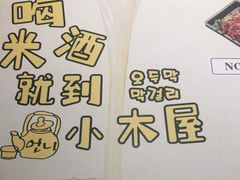 喝
米酒
就到
小木屋
오두막
막걸리
언니
NO